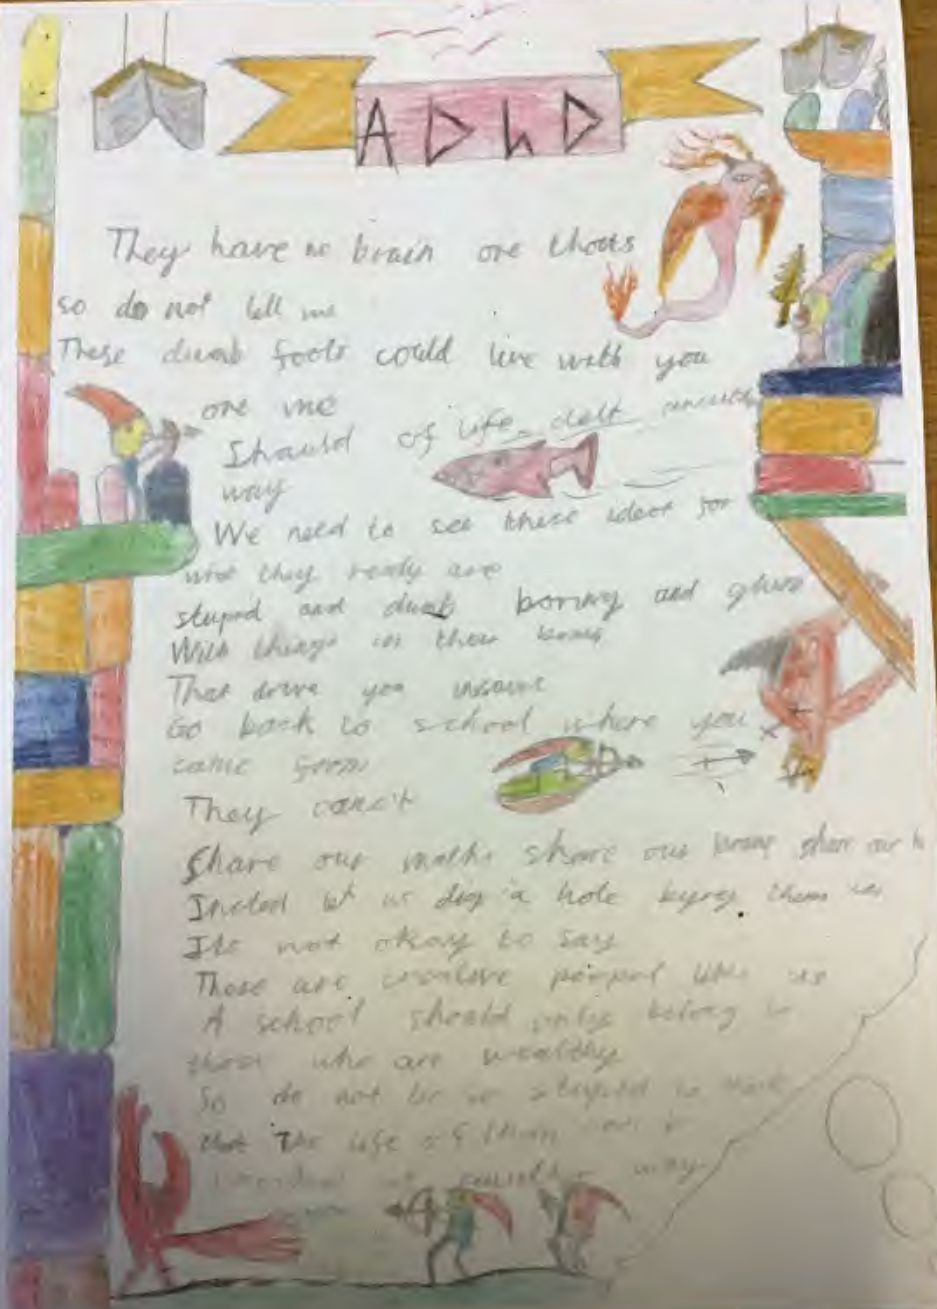 ADhD
They have no brain ore thots
so do not tell me
These dumb fools could live with you
ore me
Should of life delt
way
We need to see these ideot for
who they realy are
stupid and dumb borring and
With things in there
That drive you insane
Go back to school where you
came from
They carn't
Share our maths share our share our
let us dig a hole them in
Its not okay to say
These are creative like us
A school should only belong to
those who are wealthy
So do not be so stupid to
that The life of them
way